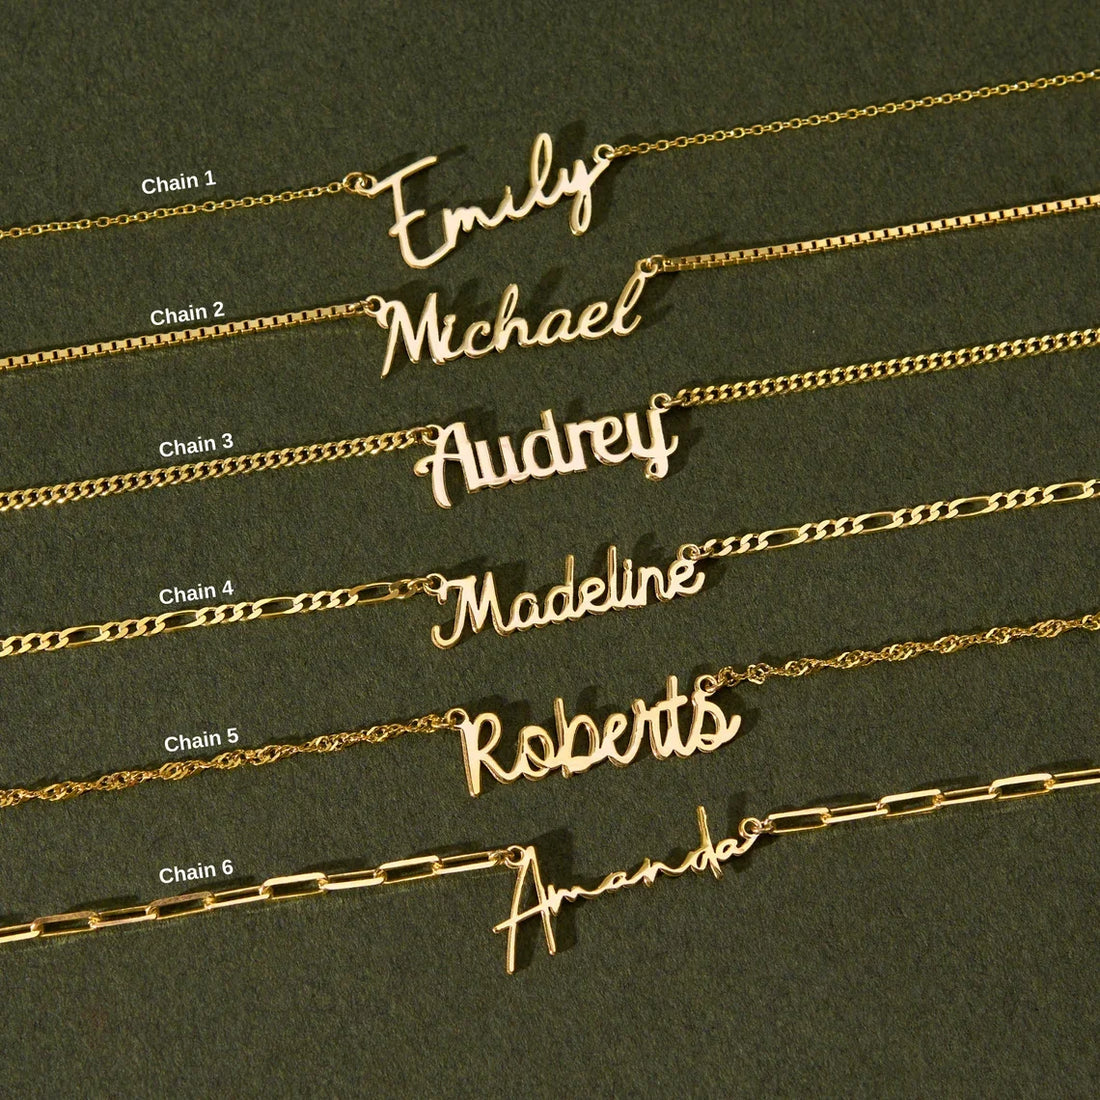 Chain 1
Emily
Chain 2
Michael
Chain 3
Audrey
Chain 4
Madeline
Chain 5
Roberts
Chain 6
Amanda